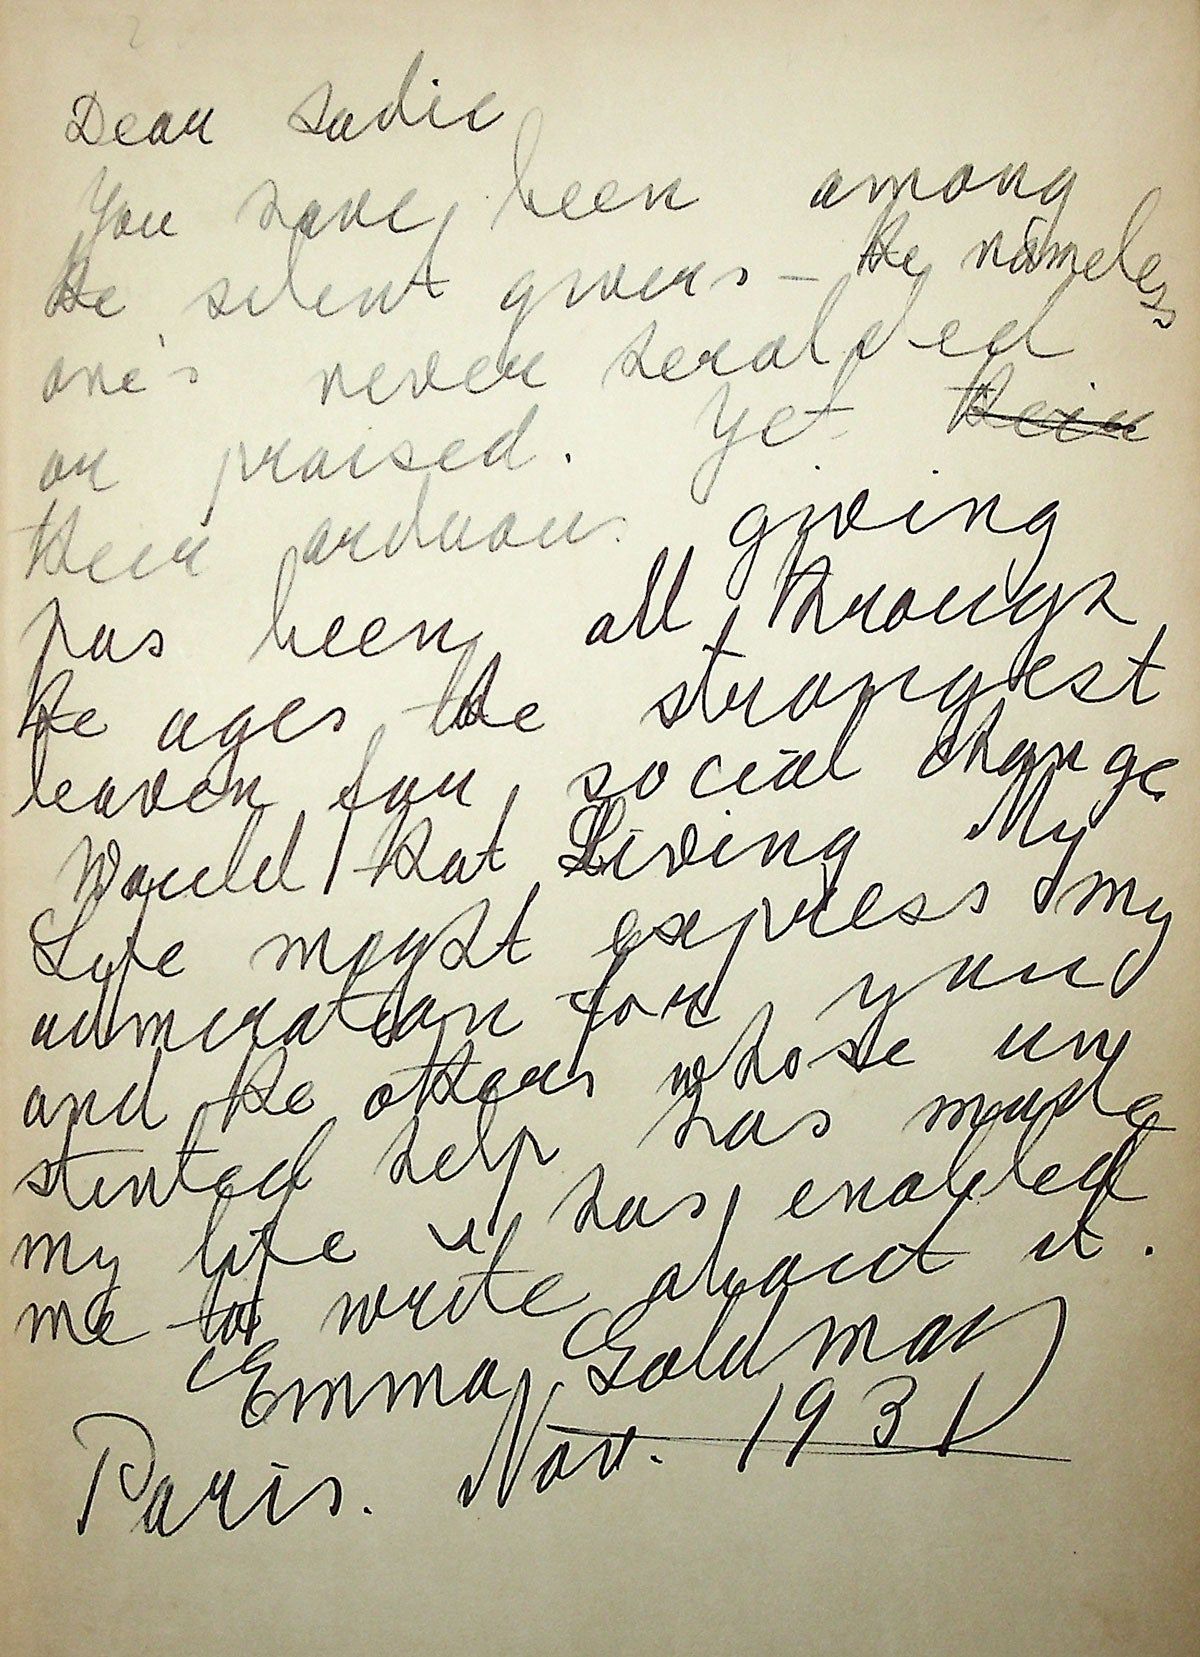 Dear Sadie
You have been among
the silent givers – the nameless
one's never heralded
or praised. Yet their
their arduous giving
has been all through
the ages the strongest
leaven for social change
Would that Living My
Life might express my
admiration for you
and the others whose un
stinted help has made
my life & has enabled
me to write about it.
Emma Goldman
Paris. Nov. 1931